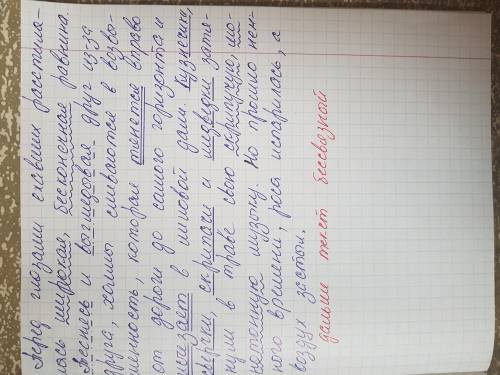 Перед глазами ехавших расстила-
лась широкая, бесконечная равнина.
Теснясь и выглядывая друг из-за
друга, холмы сливаются в возвы-
шенность, которая тянется вправо
от дороги до самого горизонта и
исчезает в лиловой дали. Кузнечики,
сверчки, скрипачи и медведки затя-
нули в траве свою скрипучую, мо-
нотонную музыку. Но прошло нем-
ного времени, роса испарилась, а
воздух застыл.
дальше текст бессвязной